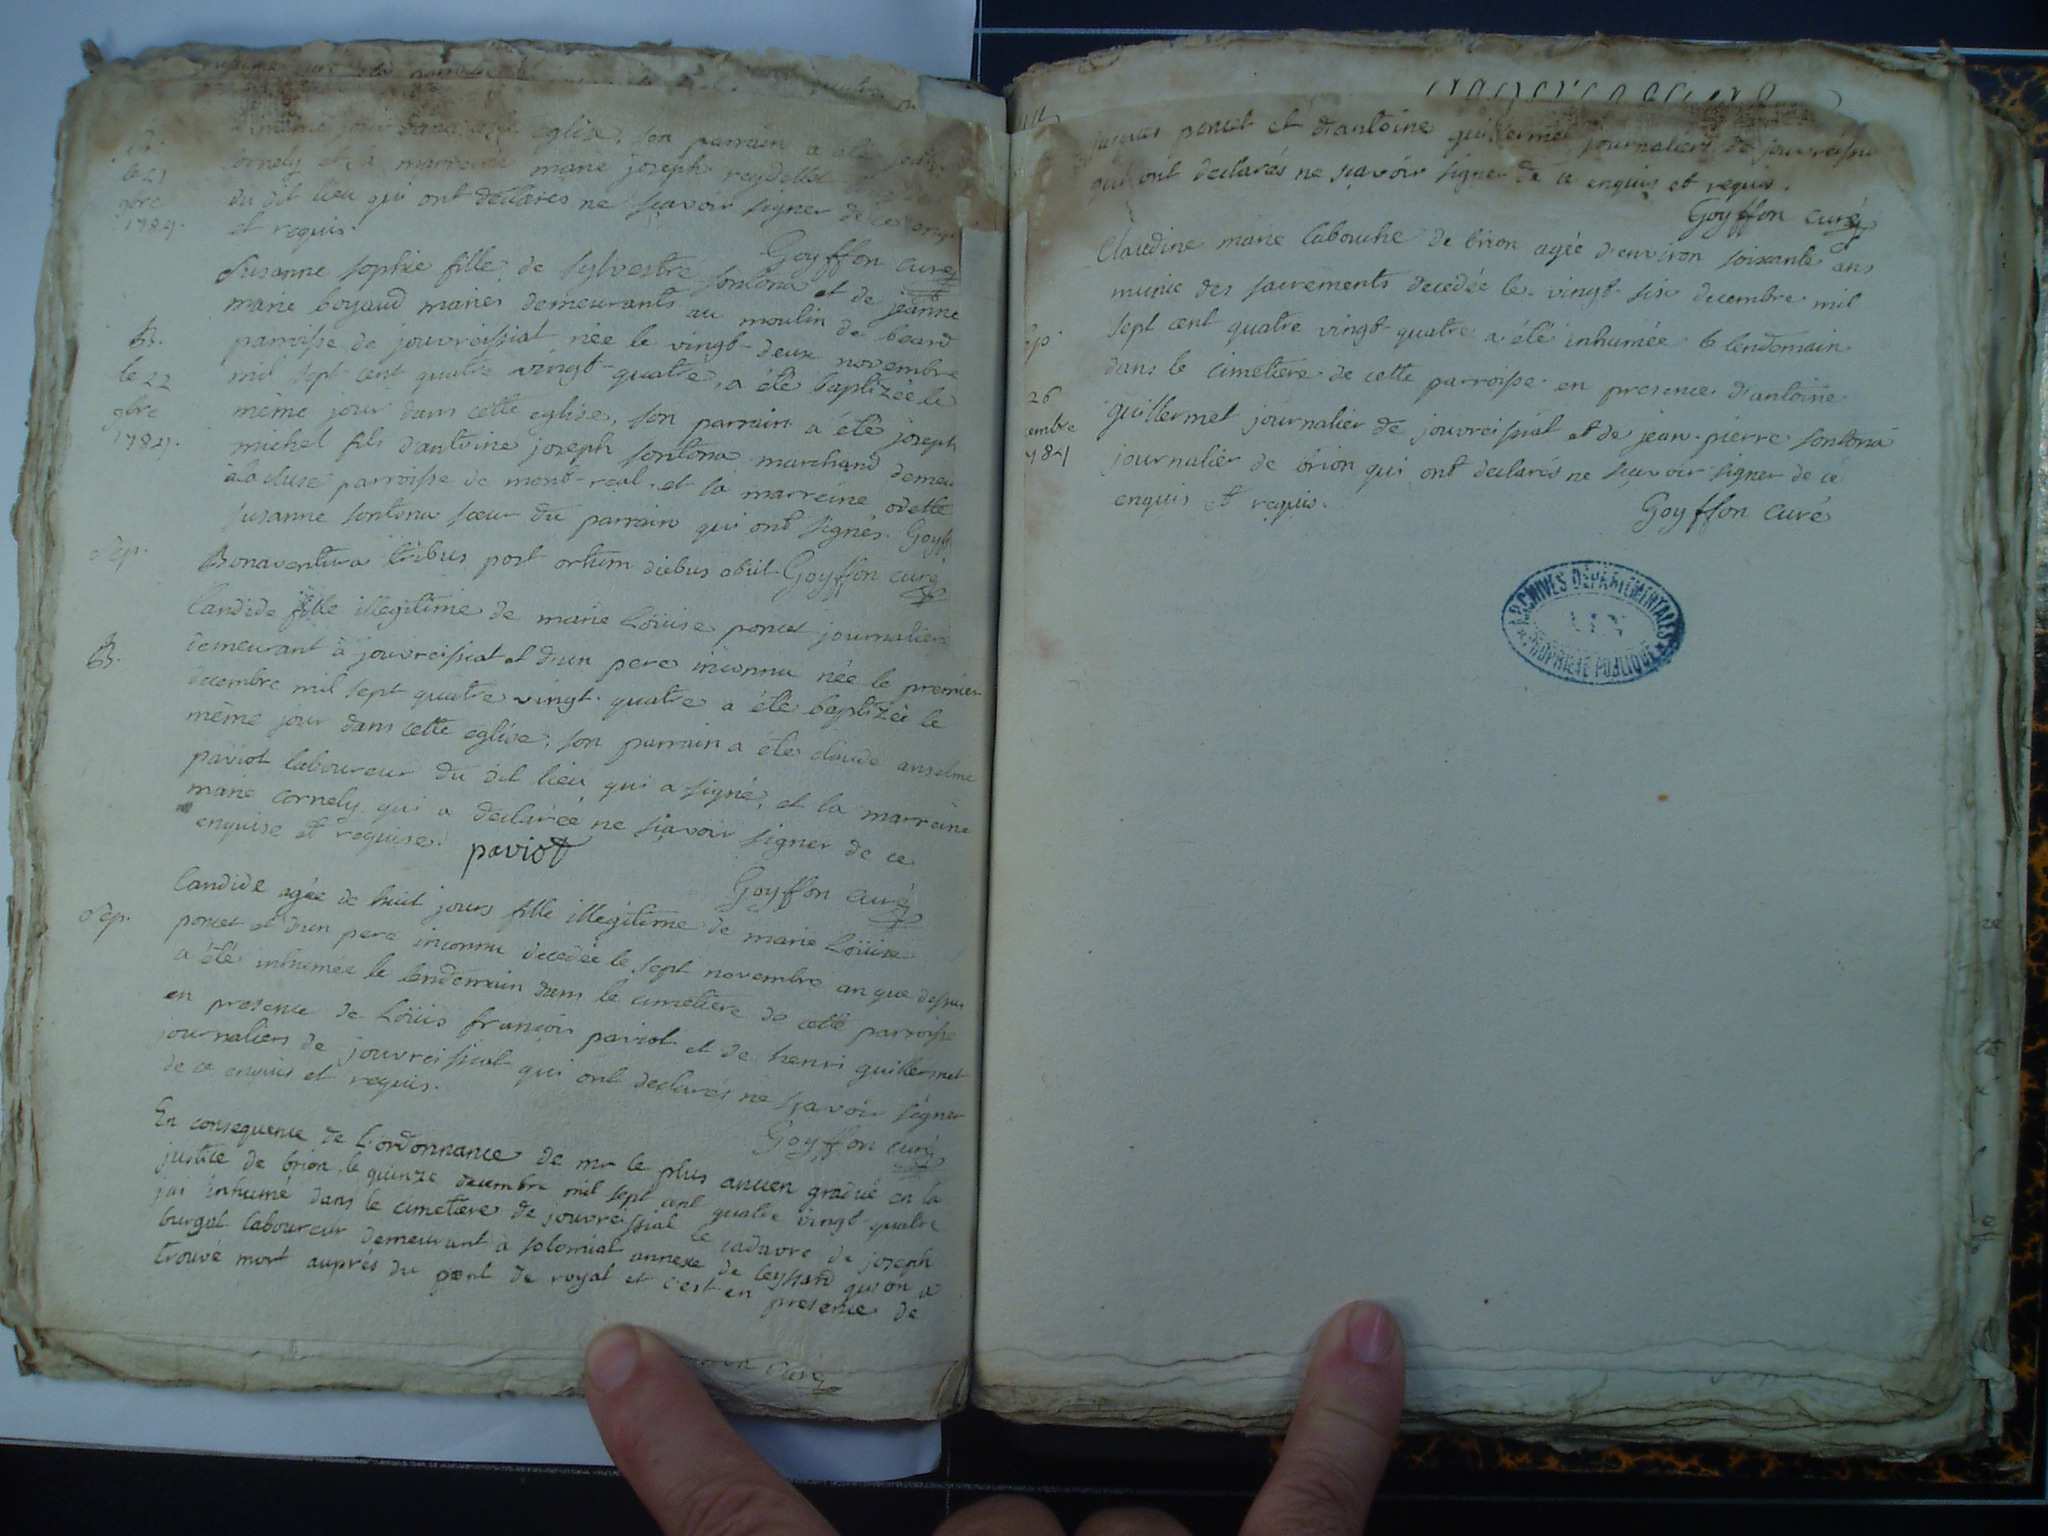 même jour dans cette eglise, son parrain a été
cornely et la marreine marie joseph reydellet
du dit lieu qui ont déclarés ne sçavoir signer de ce enquis
et requis.
Goyffon curé
le 21
9bre
1784.
Susanne sophie fille de sylvestre sontona et de jeanne
marie boyaud mariés demeurants au moulin de beard
parroisse de jouvreissiat née le vingt-deux novembre
mil sept cent quatre vingt-quatre, a été baptizée le
même jour dans cette eglise, son parrain a été joseph
michel fils d'antoine joseph sontona marchand demeu
à la cluse parroisse de mont-real. et la marreine odette
susanne sontona sœur du parrain qui ont signés. Goyff
B.
le 22
9bre
1784.
Sep.
Bonaventura tribus post ortum diebus obiit Goyffon curé
B.
Candide fille illegitime de marie Loüise poncet journaliere
demeurant à jouvreissiat et d'un pere inconnu née le premier
decembre mil sept quatre vingt-quatre a été baptizée le
même jour dans cette eglise, son parrain a été claude anselme
paviot laboureur du dit lieu qui a signé, et la marreine
marie cornely qui a déclarée ne sçavoir signer de ce
enquise et requise. paviot
Goyffon curé
Sep.
Candide agée de huit jours fille illégitime de marie Loüise
poncet et d'un pere inconnu decedée le sept novembre an que dessus
a été inhumée le lendemain dans le cimetiere de cette parroisse
en presence de Loüis françois paviot et de henri guillermet
journaliers de jouvreissiat qui ont declarés ne sçavoir signer
de ce enquis et requis.
Goyffon curé
En consequence de l'ordonnance de mr le plus ancien gradué en la
justice de brion, le quinze decembre mil sept cent quatre vingt-quatre
jai inhumé dans le cimetiere de jouvreissiat le cadavre de joseph
burgat laboureur demeurant à solomiat annexe de leyssard qu'on a
trouvé mort auprés du pont de royat et c'est en presence de
curé
jacques poncet et d'antoine guillermet journaliers de jouvreissiat
qui ont declarés ne sçavoir signer de ce enquis et requis.
Goyffon curé
Claudine marie labouche de brion agée d'environ soixante ans
munie des sacrements decedée le vingt-six decembre mil
sept cent quatre vingt-quatre a été inhumée le lendemain
dans le cimetiere de cette parroisse en presence d'antoine
guillermet journalier de jouvreissiat et de jean-pierre sontona
journalier de brion qui ont declarés ne sçavoir signer de ce
enquis et requis.
Goyffon curé
ep.
26
embre
784
ARCHIVES DÉPARTEMENTALES
AIN
PROPRIÉTÉ PUBLIQUE